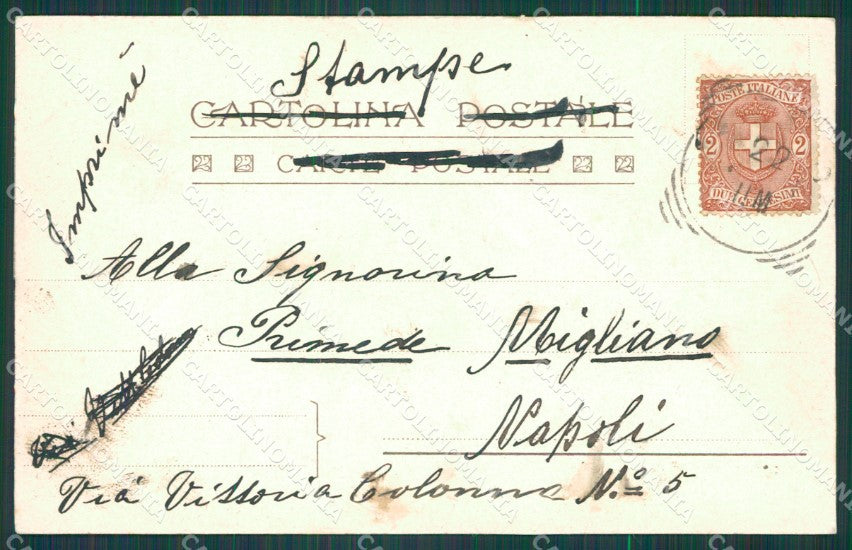 Stampe
CARTOLINA POSTALE
CARTE POSTALE
Imprimé
POSTE ITALIANE
2 2
22
Alla Signorina
Primede Migliano
Napoli
Via
Via Vittoria Colonna N.o 5
CARTOLINOMANIA